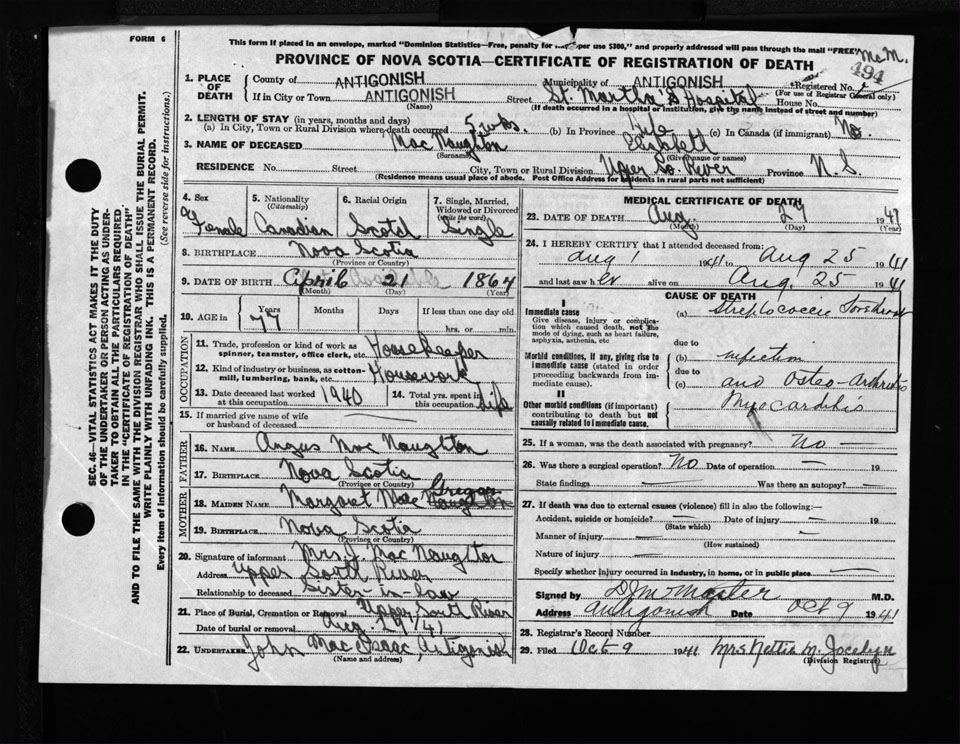 FORM 6
This form if placed in an envelope, marked "Dominion Statistics—Free, penalty for per use $300," and properly addressed will pass through the mail "FREE"
PROVINCE OF NOVA SCOTIA—CERTIFICATE OF REGISTRATION OF DEATH
McM.
494
1. PLACE OF DEATH
County of ANTIGONISH Municipality of ANTIGONISH Registered No.
(For use of Registrar General only)
If in City or Town ANTIGONISH Street St. Martha's Hospital House No.
(Name) (If death occurred in a hospital or institution, give the name instead of street and number)
2. LENGTH OF STAY (in years, months and days)
(a) In City, Town or Rural Division where death occurred 5 wks. (b) In Province Life (c) In Canada (if immigrant) No.
3. NAME OF DECEASED Mac Naughton Elizabeth
(Surname) (Given name or names)
RESIDENCE No. Street City, Town or Rural Division Upper So. River Province N. S.
(Residence means usual place of abode. Post Office Address for residents in rural parts not sufficient)
4. Sex Female
5. Nationality (Citizenship) Canadian
6. Racial Origin Scotch
7. Single, Married, Widowed or Divorced (write the word) Single
8. BIRTHPLACE Nova Scotia
(Province or Country)
9. DATE OF BIRTH April 21 1864
(Month) (Day) (Year)
10. AGE in 77 Years Months Days If less than one day old
hrs. or min.
OCCUPATION
11. Trade, profession or kind of work as spinner, teamster, office clerk, etc. Housekeeper
12. Kind of industry or business, as cotton-mill, lumbering, bank, etc. Housework
13. Date deceased last worked at this occupation 1940
14. Total yrs. spent in this occupation Life
15. If married give name of wife or husband of deceased
FATHER
16. NAME Angus Mac Naughton
17. BIRTHPLACE Nova Scotia
(Province or Country)
MOTHER
18. MAIDEN NAME Margaret Mac Gregor
19. BIRTHPLACE Nova Scotia
(Province or Country)
20. Signature of informant Mrs. J. Mac Naughton
Address Upper South River
Relationship to deceased Sister-in-law
21. Place of Burial, Cremation or Removal Upper South River
Date of burial or removal Aug. 29/41
22. UNDERTAKER John Mac Isaac, Antigonish
(Name and address)
MEDICAL CERTIFICATE OF DEATH
23. DATE OF DEATH Aug. 27 1941
(Month) (Day) (Year)
24. I HEREBY CERTIFY that I attended deceased from:
Aug 1 1941 to Aug 25 1941
and last saw h er alive on Aug. 25 1941
CAUSE OF DEATH
I
Immediate cause
Give disease, injury or complication which caused death, not the mode of dying, such as heart failure, asphyxia, asthenia, etc
(a) Streptococcic
due to
Morbid conditions, if any, giving rise to immediate cause (stated in order proceeding backwards from immediate cause).
(b) infection
due to
(c) and Osteo-Arthritis
II
Other morbid conditions (if important) contributing to death but not causally related to immediate cause.
Myocarditis
25. If a woman, was the death associated with pregnancy? No —
26. Was there a surgical operation? No Date of operation — 19
State findings Was there an autopsy? —
27. If death was due to external causes (violence) fill in also the following:—
Accident, suicide or homicide? — Date of injury — 19
(State which)
Manner of injury
(How sustained)
Nature of injury
Specify whether injury occurred in industry, in home, or in public place
Signed by M.D.
Address Antigonish Date Oct 9 1941
28. Registrar's Record Number
29. Filed Oct 9 1941 Mrs Nettie M. Jocelyn
(Division Registrar)
SEC. 46—VITAL STATISTICS ACT MAKES IT THE DUTY
OF THE UNDERTAKER OR PERSON ACTING AS UNDER-
TAKER TO OBTAIN ALL THE PARTICULARS REQUIRED
IN THE "CERTIFICATE OF REGISTRATION OF DEATH"
AND TO FILE THE SAME WITH THE DIVISION REGISTRAR WHO SHALL ISSUE THE BURIAL PERMIT.
WRITE PLAINLY WITH UNFADING INK. THIS IS A PERMANENT RECORD.
Every item of information should be carefully supplied. (See reverse side for instructions.)